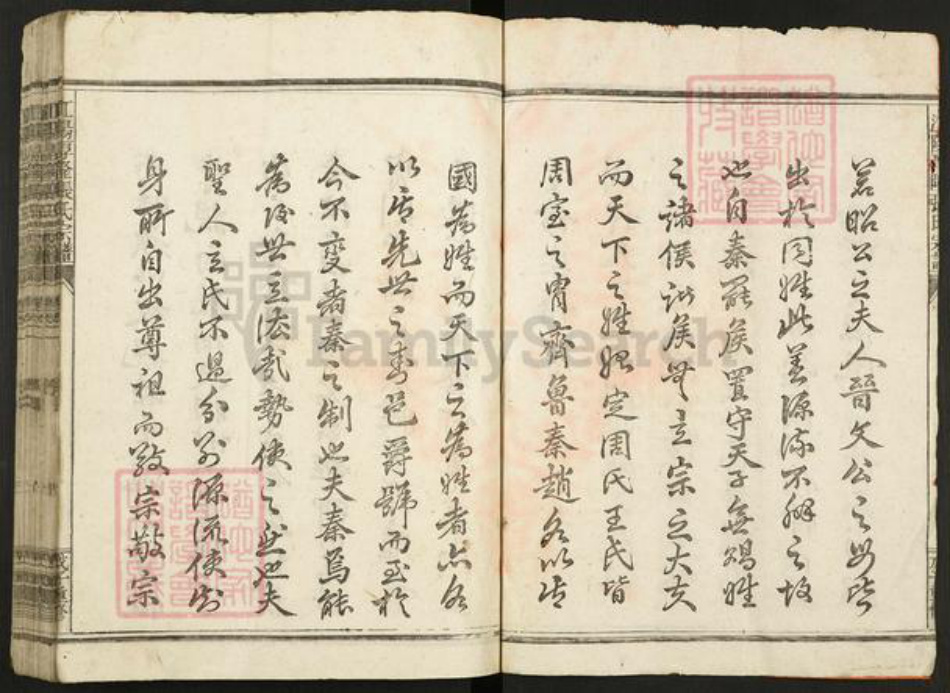 若昭公之夫人晉文公之母皆
出於同姓此善源流不辨之故
也自秦罷侯置守天子無賜姓
之諸侯訖侯無立宗之大夫
而天下之姓始定周氏王氏皆
周室之胄齊魯秦趙各以其
國為姓而天下之為姓者亦各
以其先世之封邑爵號而至於
今不變者秦之制也夫秦焉能
為後世立法哉勢使之然也夫
聖人立氏不過分別源流使知
身所自出尊祖而敬宗敬宗
FamilySearch